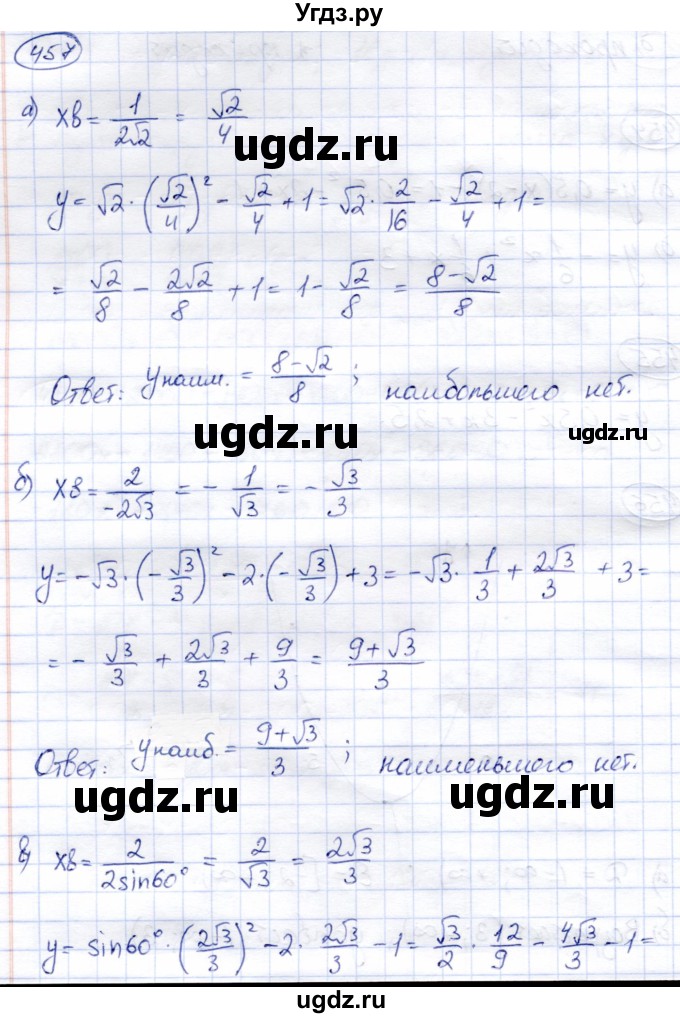 Угдз.ру
457
а) xв = 1/(2√2) = √2/4
ugdz.ru
y = √2 · (√2/4)² - √2/4 + 1 = √2 · 2/16 - √2/4 + 1 =
= √2/8 - 2√2/8 + 1 = 1 - √2/8 = (8-√2)/8
ugdz.ru
Ответ: yнаим. = (8-√2)/8 ; наибольшего нет.
ugdz.ru ugdz.ru
б) xв = 2/(-2√3) = - 1/√3 = - √3/3
y = -√3 · (-√3/3)² - 2 · (-√3/3) + 3 = -√3 · 1/3 + 2√3/3 + 3 =
ugdz.ru
= - √3/3 + 2√3/3 + 9/3 = (9+√3)/3
Ответ: yнаиб. = (9+√3)/3 ; наименьшего нет.
ugdz.ru ugdz.ru
в) xв = 2/(2sin60°) = 2/√3 = 2√3/3
y = sin60° · (2√3/3)² - 2 · 2√3/3 - 1 = √3/2 · 12/9 - 4√3/3 - 1 =
ugdz.ru
ugdz.ru